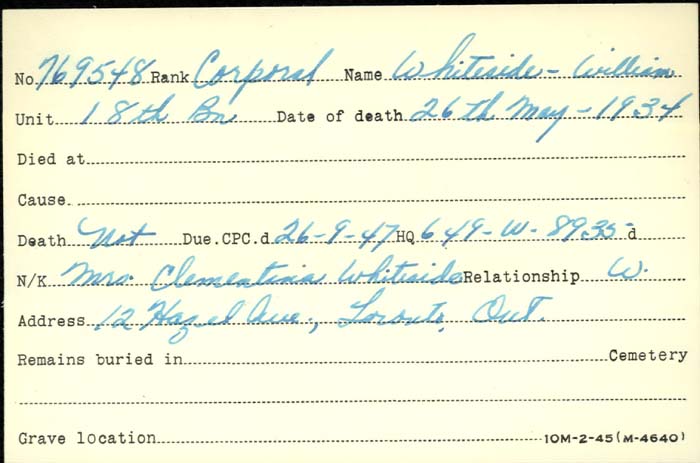 No. 769548 Rank Corporal Name Whiteside - William
Unit 18th Bn Date of death 26th May - 1934
Died at
Cause
Death Not Due.CPC.d 26-9-47 HQ 649-W-8935 d
N/K Mrs. Clementina Whiteside Relationship W.
Address 12 Hazel Ave., Toronto, Ont.
Remains buried in Cemetery
Grave location 10M-2-45 (M-4640)